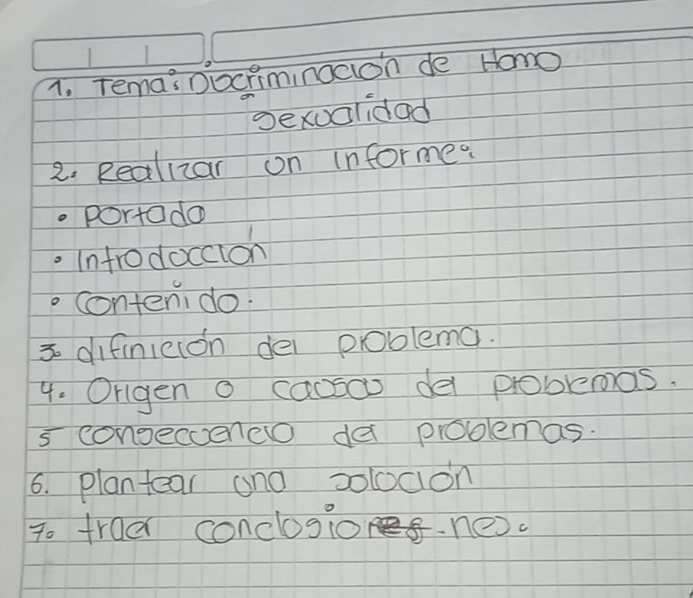 1. Tema: Discriminación de Homo
sexualidad
2. Realizar un informe:
• Portada
• Introducción
• Contenido.
3. difinición del problema.
4. Origen o causas del problemas.
5 consecuencia del problemas.
6. plantear una solución
7. traer conclusiones-nes.